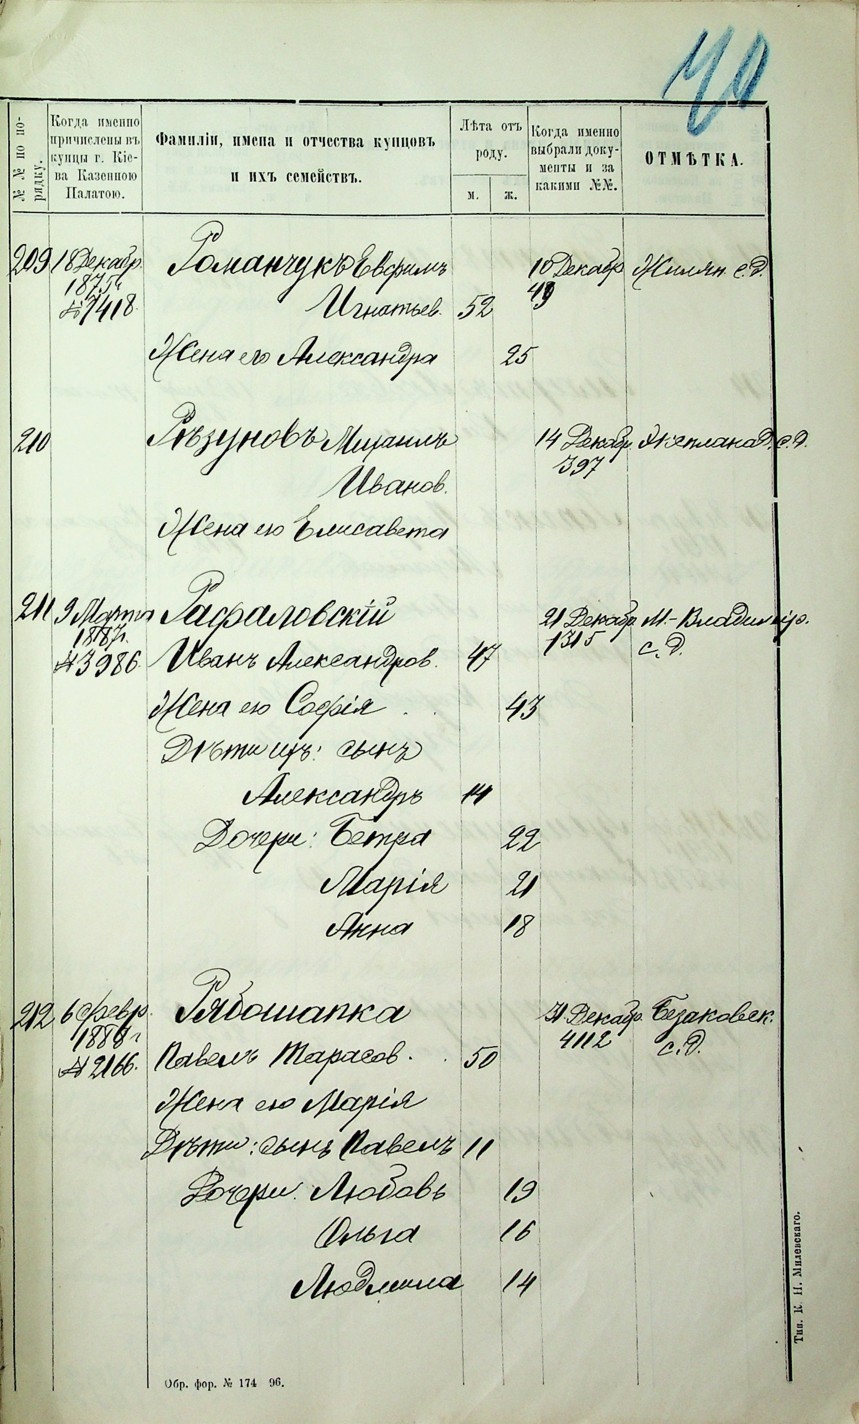 70
№№ по по-
рядку.
Когда именно
причислены въ
купцы г. Кіе-
ва Казенною
Палатою.
Фамиліи, имена и отчества купцовъ
и ихъ семействъ.
Лѣта отъ
роду.
м. ж.
Когда именно
выбрали доку-
менты и за
какими №№.
ОТМѢТКА.
209 18 Декабр. Романчукъ Евфимъ 10 Декабр Жилян. с. д.
1875 г. 49
№ 7418. Игнатьев. 52
Жена его Александра 25
210 Рѣзуновъ Михаилъ 14 Декабр. Эксплана д. с. д.
397
Иванов.
Жена его Елисавета
211 9 Марта Рафаловскій 21 Декабр М-Владимір.
1887 г. 1315 с. д.
№ 3986. Иванъ Александров. 47
Жена его Софія 43
Дѣти ихъ: сынъ
Александръ 14
Дочери: Бетра 22
Марія 21
Анна 18
212 6 Февр. Рябошапка 31 Декабр. Безаковск.
1888 г. 4112 с. д.
№ 2166. Павелъ Тарасов. 50
Жена его Марія
Дѣти: сынъ Павелъ 11
Дочери: Любовь 19
Ольга 16
Людмила 14
Обр. фор. № 174 96.
Тип. К. Н. Милевскаго.